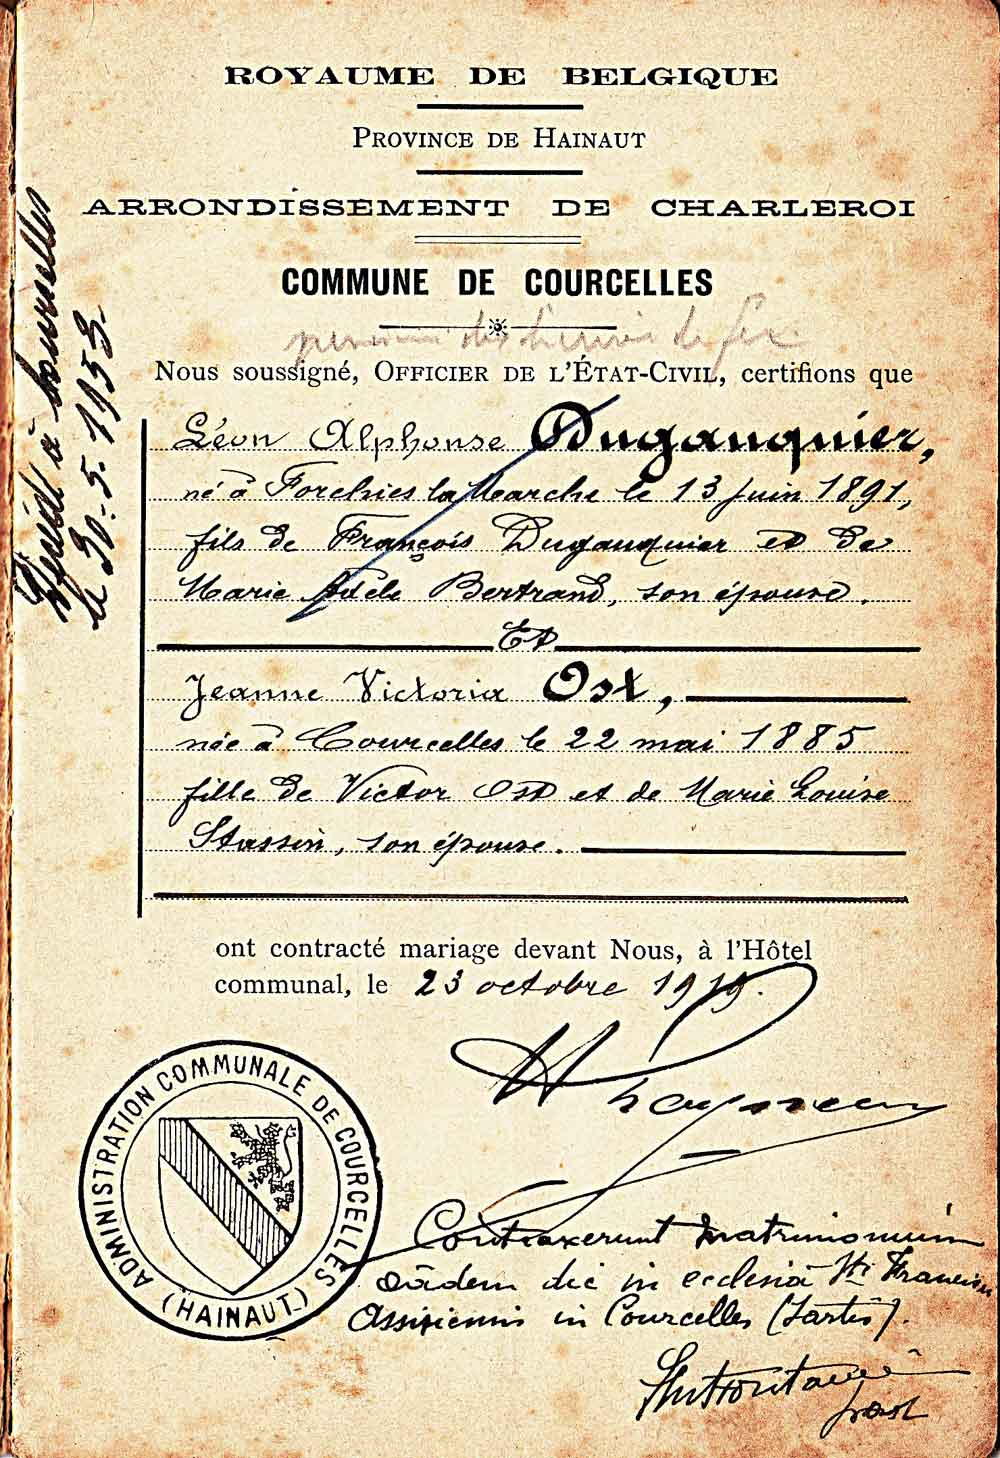 ROYAUME DE BELGIQUE
PROVINCE DE HAINAUT
ARRONDISSEMENT DE CHARLEROI
COMMUNE DE COURCELLES
Nous soussigné, OFFICIER DE L'ÉTAT-CIVIL, certifions que
Léon Alphonse Dugauquier,
né à Forchies la Marche le 13 juin 1891,
fils de François Dugauquier et de
Marie Adèle Bertrand, son épouse.
Et
Jeanne Victoria Ost,
née à Courcelles le 22 mai 1885
fille de Victor Ost et de Marie Louise
Stassin, son épouse.
ont contracté mariage devant Nous, à l'Hôtel
communal, le 23 octobre 1919.
ADMINISTRATION COMMUNALE DE COURCELLES
(HAINAUT)
Contraxerunt Matrimonium
eâdem die in ecclesiâ Sti
in Courcelles (Sartis).
à Courcelles
le 30-5-1953-